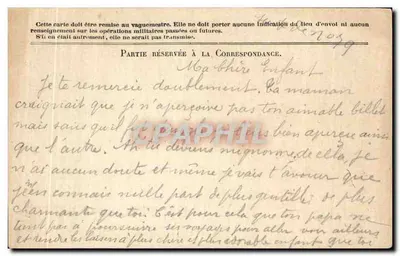 Cette carte doit être remise au vaguemestre. Elle ne doit porter aucune indication du lieu d'envoi ni aucun
renseignement sur les opérations militaires passées ou futures.
S'il en était autrement, elle ne serait pas transmise.
PARTIE RÉSERVÉE À LA CORRESPONDANCE.
Ma chère Enfant
Je te remercie doublement. Ta maman
craignait que je n'aperçoive pas ton aimable billet
mais sans qu'il bien aperçu ainsi
que l'autre. tu deviens mignonne de cela, je
n'ai aucun doute et même je vais t'avouer que
j'en connais nulle part de plus gentille de plus
charmante que toi c'est pour cela que ton papa ne
tient pas à poursuivre ses voyages pour aller voir ailleurs
et rendre les baisers à plus chère et plus adorable enfant que toi
CPAPHIL